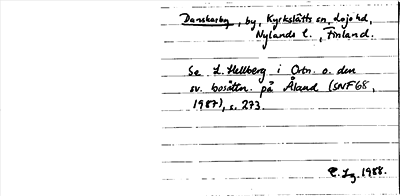 Danskarby, by, Kyrkslätts sn, Lojo hd,
Nylands l., Finland.
Se L. Hellberg i Ortn. o. den
sv. bosättn. på Åland (SNF 68,
1987), s. 273.
1988.